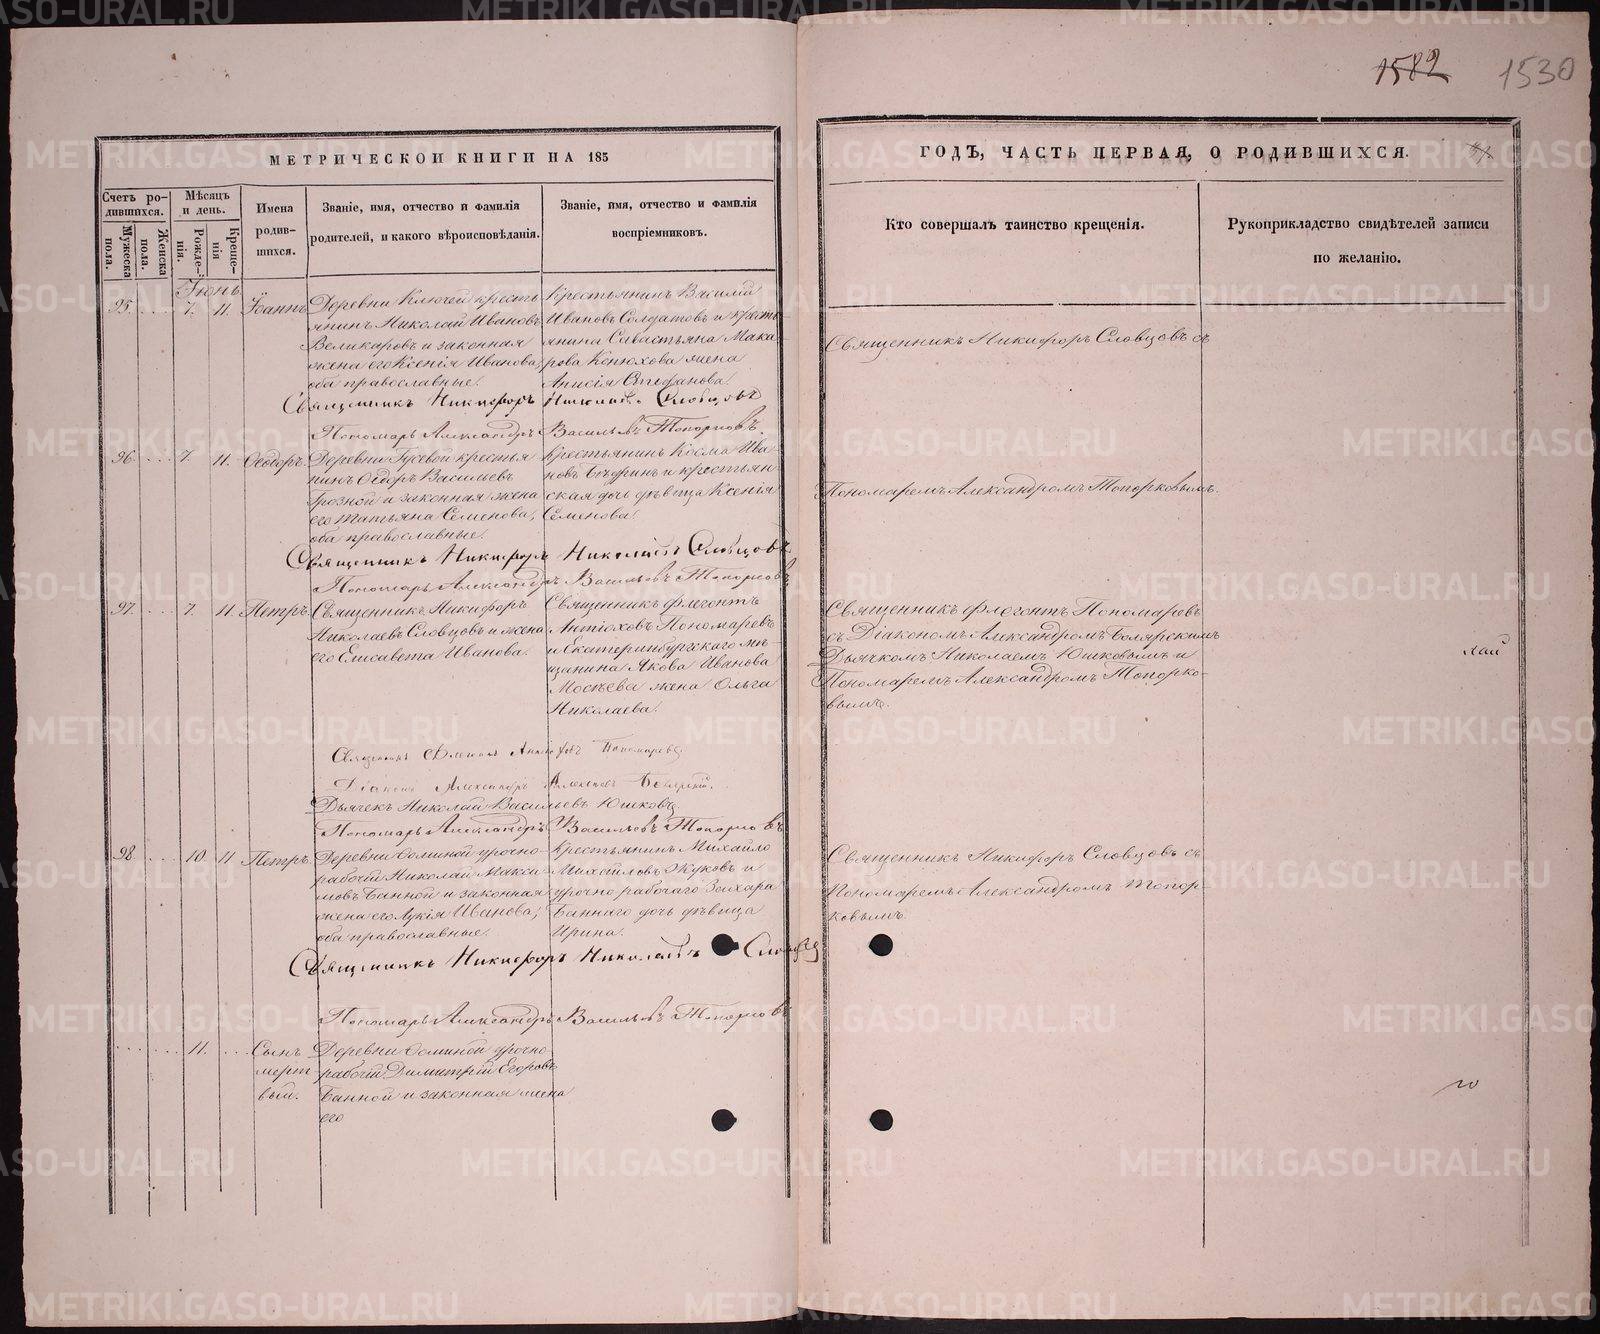 1582 1530
МЕТРИЧЕСКОЙ КНИГИ НА 185
Счетъ ро-
дившихся.
Мужеска
пола.
Женска
пола.
Мѣсяцъ
и день.
Рожде-
нія.
Креще-
нія
Имена
родив-
шихся.
Званіе, имя, отчество и фамилія
родителей, и какого вѣроисповѣданія.
Званіе, имя, отчество и фамилія
воспріемниковъ.
Іюнь
95. 7. 11. Іоаннъ
Деревни Ключей кресть
янинъ Николай Ивановъ
Великаровъ и законная
жена его Ксенія Иванова,
оба православные.
Крестьянинъ Василій
Ивановъ Солдатовъ и кресть
янина Савастьяна Мака
рова Конюхова жена
Анисія Стефанова.
Священникъ Никифоръ Николаевъ Словцовъ
Пономарь Александръ Васильевъ Топорковъ.
96. 7. 11. Ѳеодоръ
Деревни Гусевой крестья
нинъ Ѳедоръ Васильевъ
Грозной и законная жена
его Татьяна Семенова,
оба православные.
Крестьянинъ Косма Ива
новъ и крестьян
ская дочь дѣвица Ксенія
Семенова.
Священникъ Никифоръ Николаевъ Словцовъ
Пономарь Александръ Васильевъ Топорковъ
97. 7. 11. Петръ
Священникъ Никифоръ
Николаевъ Словцовъ и жена
его Елисавета Иванова.
Священникъ Флегонтъ
Антіоховъ Пономаревъ
и Екатеринбургскаго мѣ
щанина Якова Иванова
Мосѣева жена Ольга
Николаева.
Священникъ Флегонтъ Антіоховъ Пономаревъ
Діаконъ Александръ Алексѣевъ Боярскій.
Дьячекъ Николай Васильевъ Юшковъ
Пономарь Александръ Васильевъ Топорковъ
98. 10. 11 Петръ
Деревни Ѳоминой урочно-
рабочій Николай Макси
мовъ Банной и законная
жена его Лукія Иванова,
оба православные.
Крестьянинъ Михайло
Михайловъ Жуковъ и
урочно рабочаго Захара
Баннаго дочь дѣвица
Ирина.
Священникъ Никифоръ Николаевъ Словцовъ
Пономарь Александръ Васильевъ Топорковъ
11. Сынъ
мерт
вый.
Деревни Ѳоминой урочно
рабочій Димитрій Егоровъ
Банной и законная жена
его
ГОДЪ, ЧАСТЬ ПЕРВАЯ, О РОДИВШИХСЯ.
Кто совершалъ таинство крещенія.
Рукоприкладство свидѣтелей записи
по желанію.
Священникъ Никифоръ Словцовъ съ
Пономаремъ Александромъ Топорковымъ.
Священникъ Флегонтъ Пономаревъ
съ Діакономъ Александромъ Боярскимъ
Дьячкомъ Николаемъ Юшковымъ и
Пономаремъ Александромъ Топорко-
вымъ.
лай
Священникъ Никифоръ Словцовъ съ
Пономаремъ Александромъ Топор
ковымъ
го
METRIKI.GASO-URAL.RU